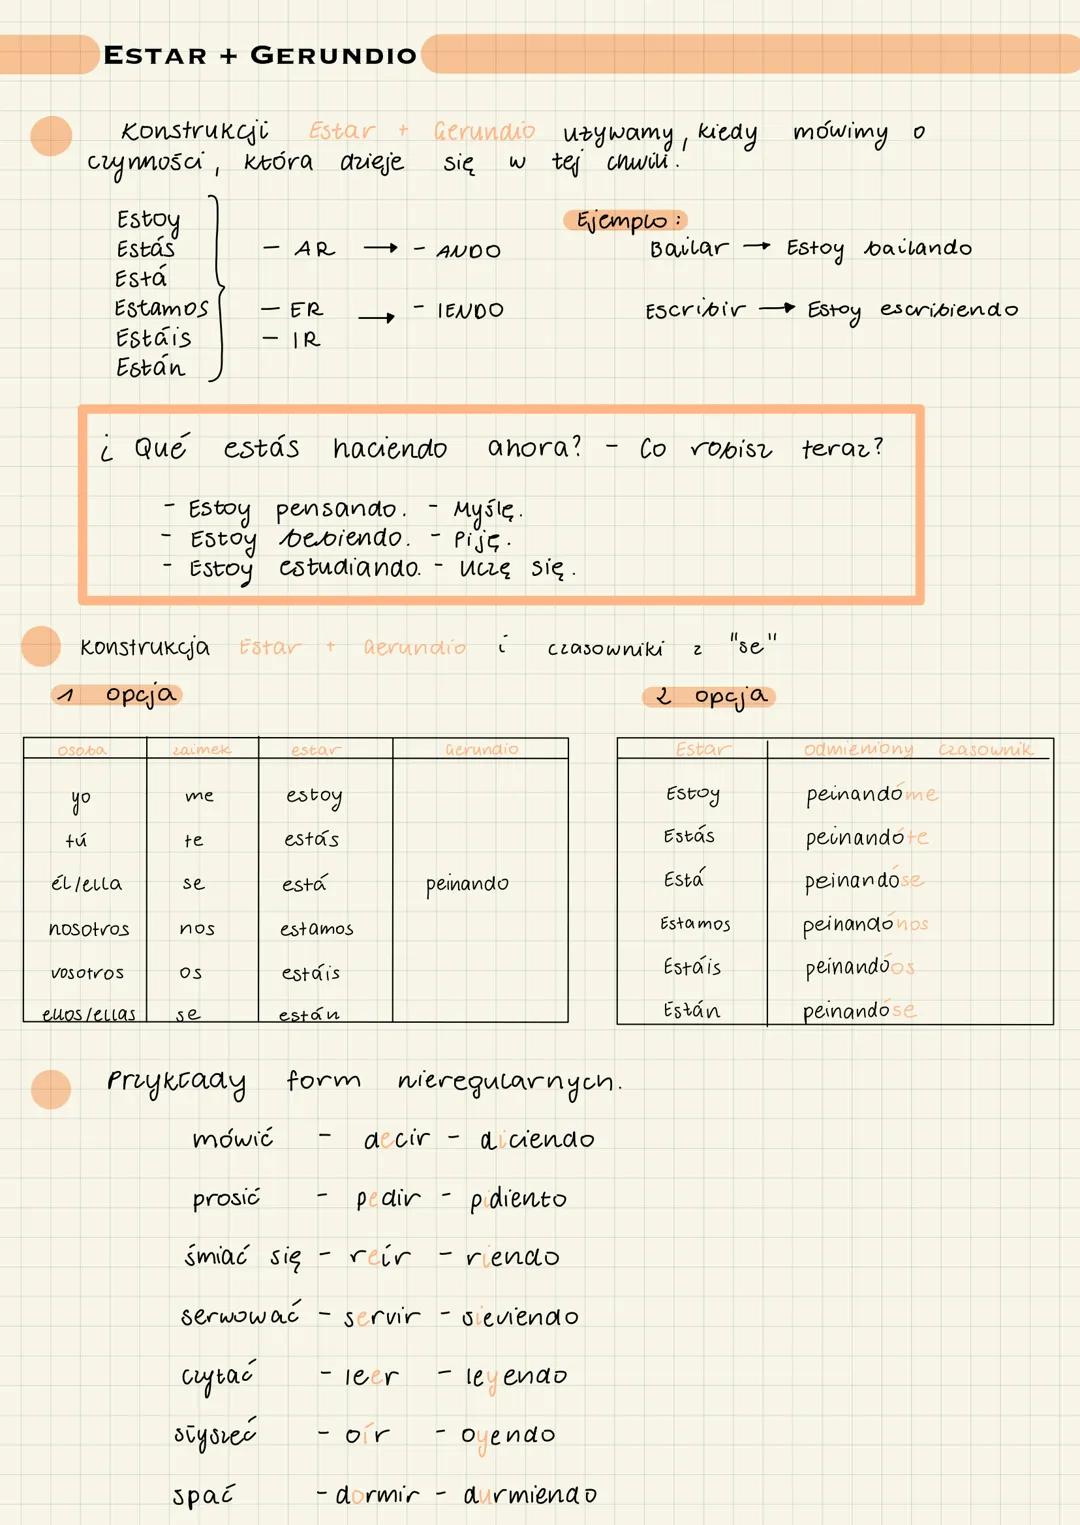 ESTAR + GERUNDIO
Konstrukcji Estar + Gerundio używamy, kiedy mówimy o
czynności, która dzieje się w tej chwili.
Estoy
Estás
Está
Estamos
Estáis
Están
- AR → - ANDO
- ER → - IENDO
- IR
Ejemplo:
Bailar → Estoy bailando
Escribir → Estoy escribiendo
¿Qué estás haciendo ahora? - Co robisz teraz?
- Estoy pensando. - Myślę.
- Estoy bebiendo. - Piję.
- Estoy estudiando. - Uczę się.
Konstrukcja Estar + Gerundio i czasowniki z "se"
1 opcja
osoba zaimek estar Gerundio
yo me estoy
tú te estás
él/ella se está peinando
nosotros nos estamos
vosotros os estáis
ellos/ellas se están
2 opcja
Estar odmieniony czasownik
Estoy peinandóme
Estás peinandóte
Está peinandóse
Estamos peinandónos
Estáis peinandóos
Están peinandóse
Przykłady form nieregularnych.
mówić - decir - diciendo
prosić - pedir - pidiento
śmiać się - reír - riendo
serwować - servir - sieviendo
czytać - leer - leyendo
słyszeć - oír - oyendo
spać - dormir - durmiendo